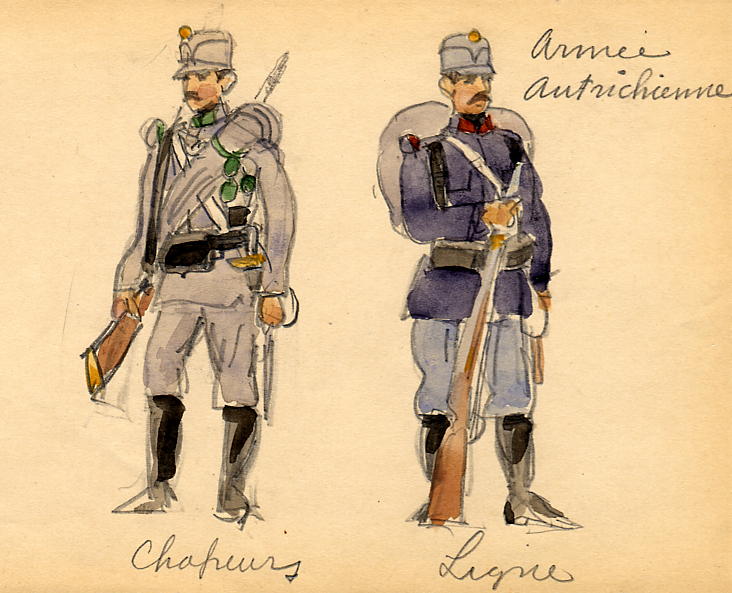 Armée
Autrichienne
Chasseurs
Ligne